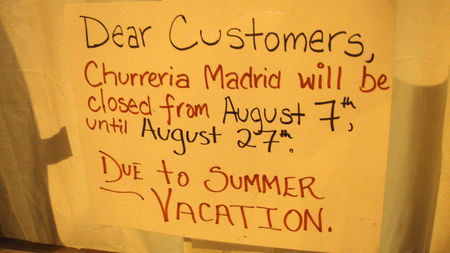 Dear Customers,
Churreria Madrid will be
closed from August 7th,
until August 27th.
DUE to SUMMER
VACATION.